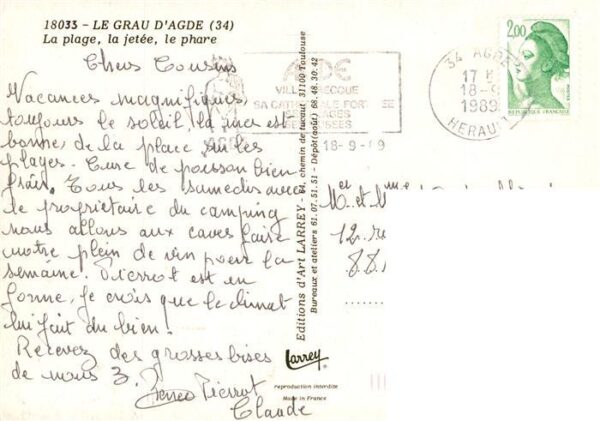 18033 - LE GRAU D'AGDE (34)
La plage, la jetée, le phare
Chers Cousins
Vacances magnifiques,
toujours le soleil, la mer est
bonne de la place sur les
plages. Cure de poisson bien
frais. Tous les samedis avec
le propriétaire du camping
nous allons aux caves faire
notre plein de vin pour la
semaine. Pierrot est en
forme, je crois que le climat
lui fait du bien!
Recevez des grosses bises
de nous 3.
Pierrot
Claude
Editions d'Art LARREY - 64, chemin de tucaut 31100 Toulouse
Bureaux et ateliers 61.07.51.51 - Dépôt (août) 68.48.30.42
Larrey
reproduction interdite
Made in France
VILLE
SA CATHEDRALE FORTIFIEE
18-9-89
34 AGDE
17 H
18-9
1989
HERAULT
2,00
REPUBLIQUE FRANÇAISE
12